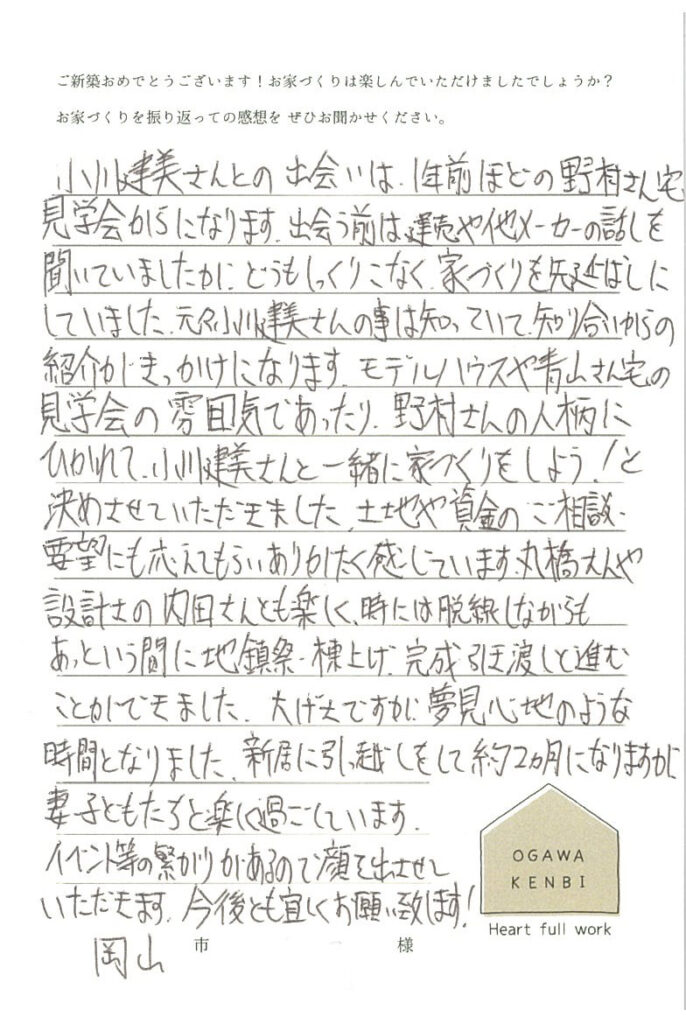 ご新築おめでとうございます！お家づくりは楽しんでいただけましたでしょうか？
お家づくりを振り返っての感想を ぜひお聞かせください。
小川建美さんとの出会いは、1年前ほどの野村さん宅
見学会からになります。出会う前は、建売や他メーカーの話しを
聞いていましたが、どうもしっくりこなく、家づくりを先延ばしに
していました。元々小川建美さんの事は知っていて、知り合いからの
紹介がきっかけになります。モデルハウスや青山さん宅の
見学会の雰囲気であったり、野村さんの人柄に
ひかれて、小川建美さんと一緒に家づくりをしよう！と
決めさせていただきました。土地や資金のご相談・
要望にも応えてもらいありがたく感じています。丸橋さんや
設計士の内田さんとも楽しく、時には脱線しながらも
あっという間に地鎮祭・棟上げ、完成引き渡しと進む
ことができました。大げさですが、夢見心地のような
時間となりました。新居に引っ越しをして約2ヵ月になりますが
妻子どもたちと楽しく過ごしています。
イベント等の繋がりがあるので顔を出させて
いただきます。今後とも宜しくお願い致します！
OGAWA
KENBI
Heart full work
岡山 市 様